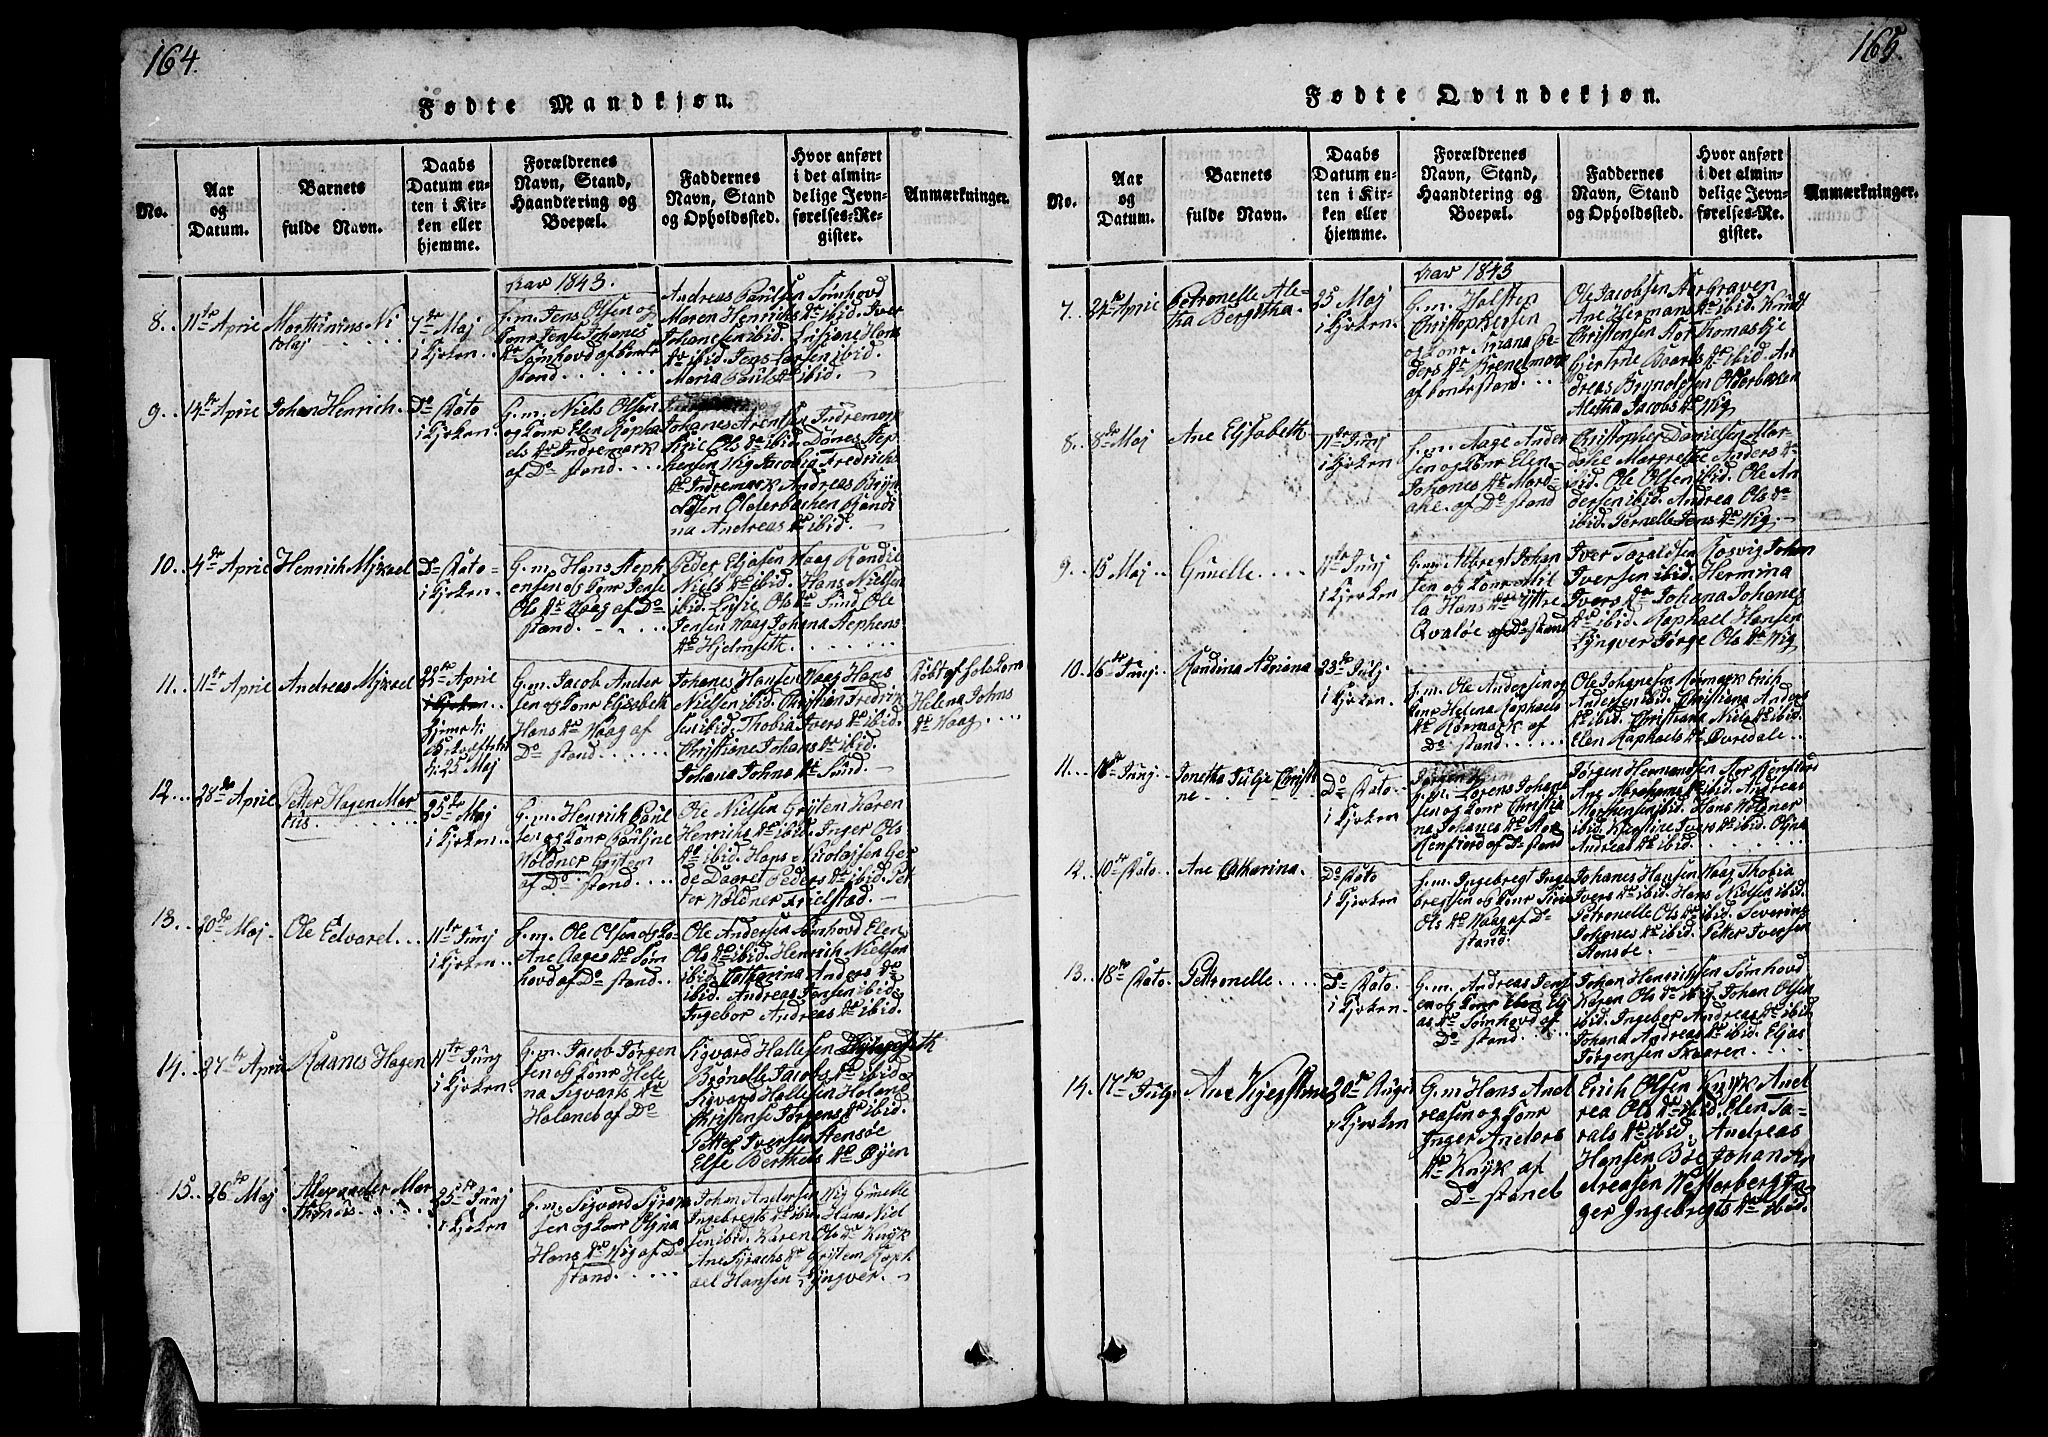 164.
Fødte Mandkjøn.
No.
Aar
og
Datum.
Barnets
fulde Navn.
Daabs
Datum en-
ten i Kir-
ken eller
hjemme.
Forældrenes
Navn, Stand,
Haandtering og
Boepæl.
Faddernes
Navn, Stand
og Opholdssted.
Hvor anført
i det almin-
delige Jevn-
førelses-Re-
gister.
Anmærkninger.
Aar 1843.
8. 11te April
Marthinius Ni
colaj
7de Maj
i Kjrken
G. m. Jens Olsen og
Johanes
dr Sømhovd af bonde
stand
Andreas Paulsen Sømhovd
Maren Henrichs dr ibid. Iver
Johansen ibid. Hans
dr ibid. Jens Larsen ibid.
Maria Pauls dr ibid.
9. 14de April
Johan Henrich.
Do Dato
i Kjrken
G. m. Niels Olsen
og Konr Elen Rapha
els dr Indremark
af Do stand
Johanes Arentsen Indremark
Ols dr ibid. Dönes Step
hensen Vig Jacobia Fredrichs
dr Indremark Andreas Brÿn
olfsen Olderbachen Randi
na Andreas dr ibid.
10. 4de April
Henrich Mjkael
Do Dato
i Kjrken
G. m. Hans Steph
ensen og Konr
Ols dr Vaag af Do
stand
Peder Eljasen Vaag Randie
Niels dr ibid. Hans Nielsen
ibid. Ols dr Sund Ole
Jensen Vaag Johana Stephens
dr Hjelmseth
11. 11te April
Andreas Mjkael
April
i Kjrken
hjemet
d: 25 Maj
G. m. Jacob Ander
sen og Konr Elisabeth
Hans dr Vaag af
Do stand
Johanes Hansen Vaag Hans
Nielsen ibid. Christian Fredrik
sen ibid. Thobia Ivers dr ibid.
Christiane Johans dr ibid.
Johana Johns dr Sund
Døbt af
Helena Johns
dr Vaag
12. 28de April
Petter Hagen Mar
kus
25de Maj
i Kjrken
G. m. Henrich Paul
sen og Konr Pauljne
Holdner Grÿtem
af Do stand
Ole Nielsen Grÿten Karen
Henrichs dr ibid. Inger Ols
dr ibid. Hans Nicolajsen
Peders dr ibid. Pet
ter Holdner
13. 20de Maj
Ole Edvard
11te Junj
i Kjrken
G. m. Ole Olsen og Ko-
Ane Aages dr Søm
hovd af Do stand
Ole Andersen Sømhovd Elen
Ols dr ibid. Henrich Nielsen
ibid. Catharina Anders dr
ibid. Andreas Jensen ibid.
Ingebor Andreas dr ibid.
14. 27de April
Hagen
11te Junj
i Kjrken
G. m. Jacob Jørgen
sen og Konr Hele
na Sigvarts dr
af Do
Sigvard Hallesen
Jacobs dr ibid
Sigvard Hallesen
Jörgens dr ibid.
Petter Iversen Stensøe
Else Berthels dr Øÿen
15. 26de Maj
Alexander Mar
25de Junj
i Kjrken
G. m. Sigvard
sen og Konr Oljna
Hans dr Vig af Do
stand
John Andersen Vig Gunelle
Ingebregts dr ibid. Hans Niel
sen ibid. Karen Ols dr Knÿk
Ane dr Grÿtem Raph
ael Hansen Lÿngver.
165.
Fødte Qvindekjøn.
No.
Aar
og
Datum.
Barnets
fulde Navn.
Daabs
Datum en-
ten i Kir-
ken eller
hjemme.
Forældrenes
Navn, Stand,
Haandtering og
Boepæl.
Faddernes
Navn, Stand
og Opholdssted.
Hvor anført
i det almin-
delige Jevn-
førelses-Re-
gister.
Anmærkninger.
Aar 1843
7. April
Petronelle Ale-
tha Bergitha
25 Maj
i Kjrken
G. m. Holsten
Christophersen
og Konr Pe-
ders dr Brendmark
af bonde stand
Ole Jacobsen
Ane Hermans dr ibid. Knudt
Christensen
dr ibid. An
dreas Brÿnolfsen Olderbaken
Aletha Jacobs dr Vig
8. 8de Maj
Ane Eljsabeth
11te Junj
i Kjrken
G. m. Aage Ander
sen og Konr Elen
Johanes dr Mard-
ahl af Do stand
Christopher Danielsen Mar-
dahl Margrethe Anders dr
ibid. Ole Olsen ibid. Ole An
dersen ibid. Andrea Ols dr
ibid. Pernelle Jens dr Vig
9. 15 Maj
Gunelle
11te Junj
i Kjrken
G. m. Albregt Johan
sen og Konr Mil
la Hans dr Yttre
Qvaløe af Do stand
Iver Taraldsen Rosvig Johan
Iversen ibid. Hermina
Ivers dr Johana Johanes
dr ibid. Raphael Hansen
Lÿngver Ols dr Vig
10. 16de Junj
Randina Adriana
23de Julj
i Kjrken
G. m. Ole Andersen og
Konr Helena Raphaels
dr Normark af
Do stand
Ole Johanesen Normark Erich
Andersen ibid. Christiana Anders
dr ibid. Christiana Niels dr ibid.
Elen Raphaels dr Øvredale
11. 16de Junj
Jonetha Julje Christi
ne
Do Dato
i Kjrken
G. m. Lorens Johane
sen og Konr Christia
na Johanes dr
af Do stand
Jørgen Hermandsen
Ane Abrahams dr ibid. Andreas
Morthensen ibid. Hans Holdner
ibid. Kirstine Ivers dr ibid. Oljna
Andreas dr ibid.
12. 10de Dato
Ane Catharina
Do Dato
i Kjrken
G. m. Ingebregt Inge
bregtsen og Konr
Ols dr Vaag af Do
stand
Johanes Hansen Vaag Thobia
Ivers dr ibid. Hans Nielsen ibid.
Petronelle Ols dr ibid. Severine
Johanes dr ibid. Petter Iversen
Stensøe
13. 18de Dato
Petronelle
Do Dato
i Kjrken
G. m. Andreas Jens
en og Konr Elen Elj
as dr Sømhovd af
Do stand
Johan Henrichsen Sømhovd
Karen Ols dr ibid. Johan Olsen
ibid. Ingebor Andreas dr ibid
Johana Andreas dr ibid. Eljas
Jørgensen Skaaren
14. 17de Julj
Ane
20de Augu
i Kjrken
G. m. Hans And
reasen og Konr
Inger Anders
dr Knÿk af
Do stand
Erich Olsen Knÿk And
rea Ols dr ibid. Elen Ta-
ralds dr ibid. Andreas
Hansen Böe Johan An
dreasen Westerberg In
ger Ingebregts dr ibid.